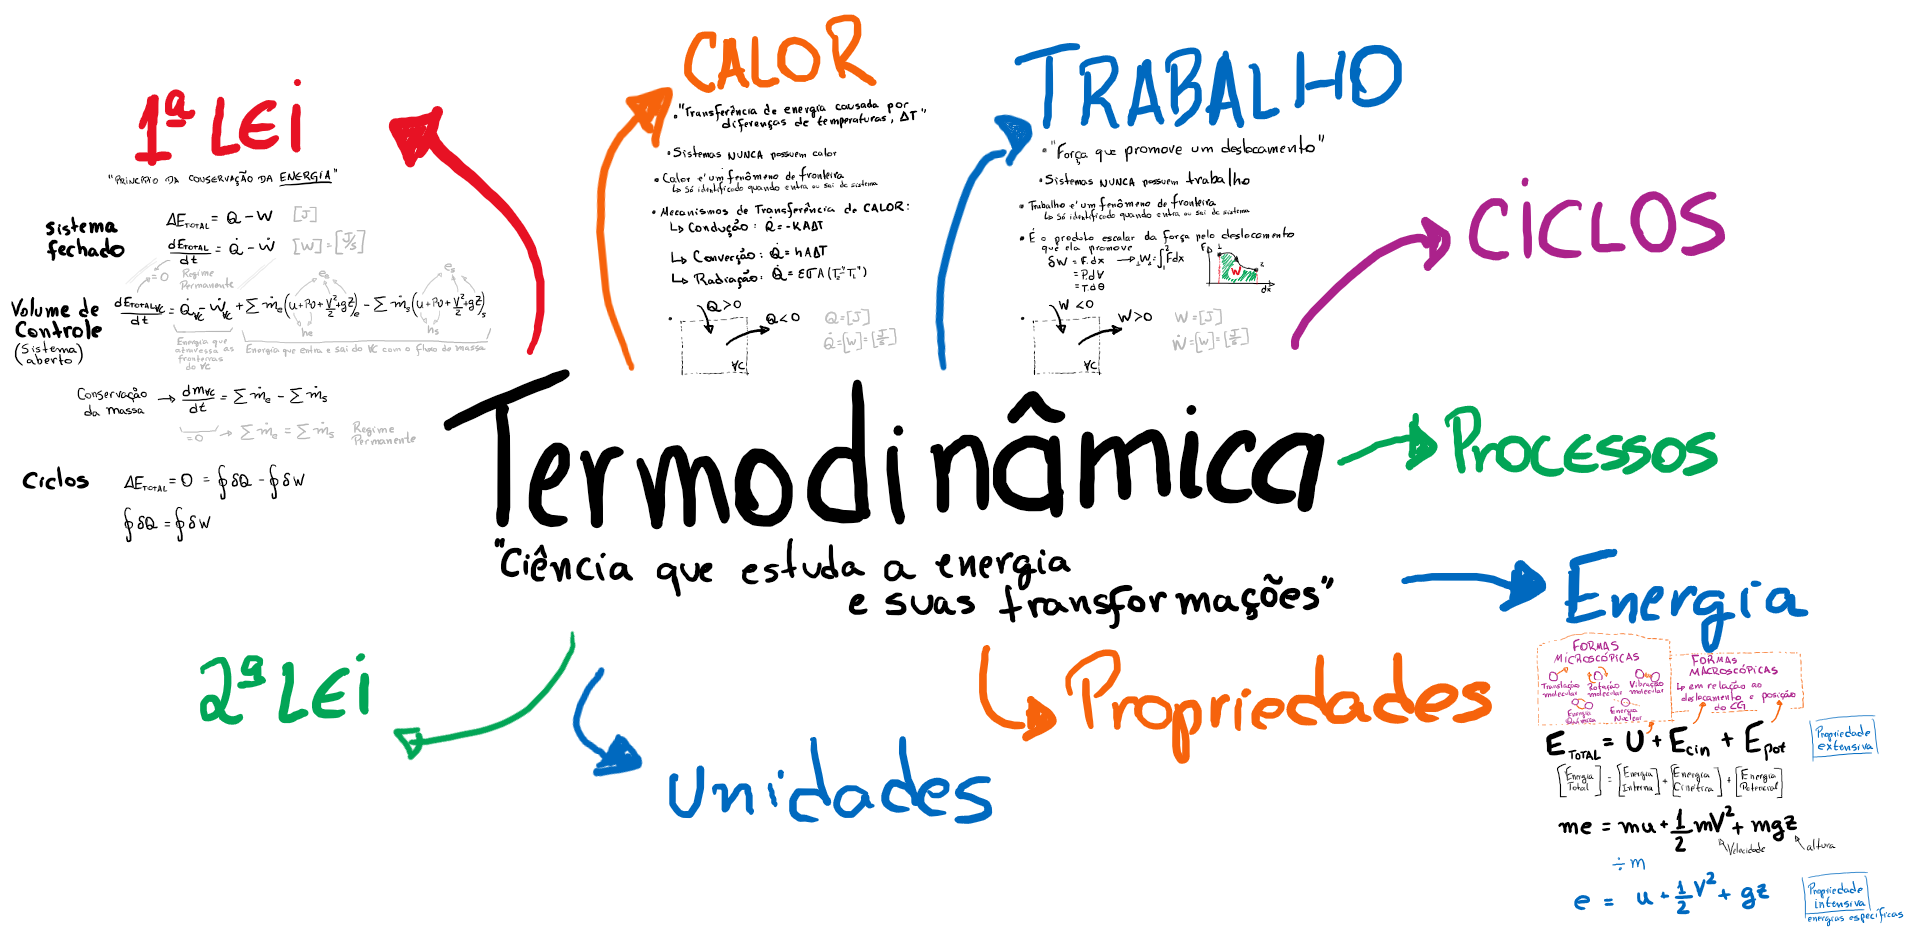 1ª LEI
"PRINCÍPIO DA CONSERVAÇÃO DA ENERGIA"
Sistema fechado
ΔE_TOTAL = Q - W [J]
dE_TOTAL/dt = Q̇ - Ẇ [W] = [J/s]
=0 Regime Permanente
e_e
e_s
Volume de Controle
(Sistema aberto)
dE_TOTAL VC/dt = Q̇_VC - Ẇ_VC + Σ ṁ_e (u + Pυ + V²/2 + gz)_e - Σ ṁ_s (u + Pυ + V²/2 + gz)_s
he
hs
Energia que atravessa as fronteiras do VC
Energia que entra e sai do VC com o fluxo de massa
Conservação da massa → dm_VC/dt = Σ ṁ_e - Σ ṁ_s
=0 → Σ ṁ_e = Σ ṁ_s Regime Permanente
Ciclos
ΔE_TOTAL = 0 = ∮ δQ - ∮ δW
∮ δQ = ∮ δW
CALOR
• "Transferência de energia causada por
diferenças de temperaturas, ΔT"
• Sistemas NUNCA possuem calor
• Calor e' um fenômeno de fronteira
↳ Só identificado quando entra ou sai do sistema
• Mecanismos de Transferência de CALOR:
↳ Condução: Q̇ = -KAΔT
↳ Converção: Q̇ = hAΔT
↳ Radiação: Q̇ = εσA(Ts⁴-T∞⁴)
Q>0
Q<0
VC
Q = [J]
Q̇ = [W] = [J/s]
TRABALHO
• "Força que promove um deslocamento"
• Sistemas NUNCA possuem trabalho
• Trabalho e' um fenômeno de fronteira
↳ Só identificado quando entra ou sai do sistema
• É o produto escalar da força pelo deslocamento
que ela promove
δW = F.dx → ₁W₂ = ∫₁² Fdx
= P.dV
= T.dθ
F
1
2
W
dx
W<0
W>0
VC
W = [J]
Ẇ = [W] = [J/s]
CICLOS
Processos
Termodinâmica
"Ciência que estuda a energia
e suas transformações"
Energia
FORMAS MICROSCÓPICAS
Translação molecular
Rotação molecular
Vibração molecular
Energia Química
Energia Nuclear
FORMAS MACROSCÓPICAS
↳ em relação ao
deslocamento e posição
do CG
E_TOTAL = U + E_cin + E_pot
Propriedade extensiva
[Energia Total] = [Energia Interna] + [Energia Cinética] + [Energia Potencial]
me = mu + 1/2 mV² + mgz
Velocidade
altura
÷ m
e = u + 1/2 V² + gz
Propriedade intensiva
energias específicas
2ª LEI
Unidades
Propriedades